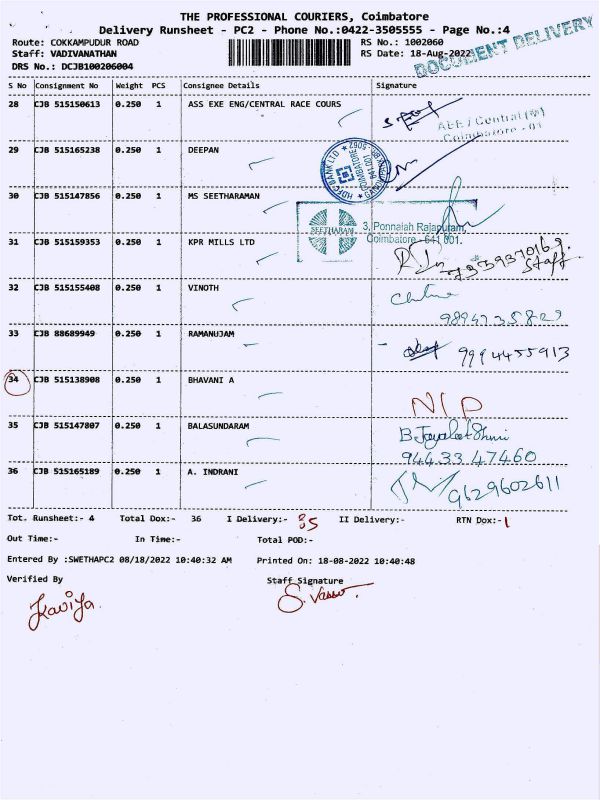 THE PROFESSIONAL COURIERS, Coimbatore
Delivery Runsheet - PC2 - Phone No.:0422-3505555 - Page No.:4
Route: COKKAMPUDUR ROAD RS No.: 1002060
Staff: VADIVANATHAN RS Date: 18-Aug-2022
DRS No.: DCJB100206004
DOCUMENT DELIVERY
S No Consignment No Weight PCS Consignee Details Signature
28 CJB 515150613 0.250 1 ASS EXE ENG/CENTRAL RACE COURS
AEE / Central
Coimbatore - 01
29 CJB 515165238 0.250 1 DEEPAN
HDFC BANK LTD
COIMBATORE
30 CJB 515147856 0.250 1 MS SEETHARAMAN
SEETHARAM
3, Ponnaiah Rajapuram,
Coimbatore - 641 001.
31 CJB 515159353 0.250 1 KPR MILLS LTD
Staff
32 CJB 515155408 0.250 1 VINOTH
9894735829
33 CJB 88689949 0.250 1 RAMANUJAM
9994455913
34 CJB 515138908 0.250 1 BHAVANI A
N/P
35 CJB 515147807 0.250 1 BALASUNDARAM
94433 47460
36 CJB 515165189 0.250 1 A. INDRANI
9629602611
Tot. Runsheet:- 4 Total Dox:- 36 I Delivery:- 35 II Delivery:- RTN Dox:- 1
Out Time:- In Time:- Total POD:-
Entered By :SWETHAPC2 08/18/2022 10:40:32 AM Printed On: 18-08-2022 10:40:48
Verified By Staff Signature
Kaviya S. Vasu.